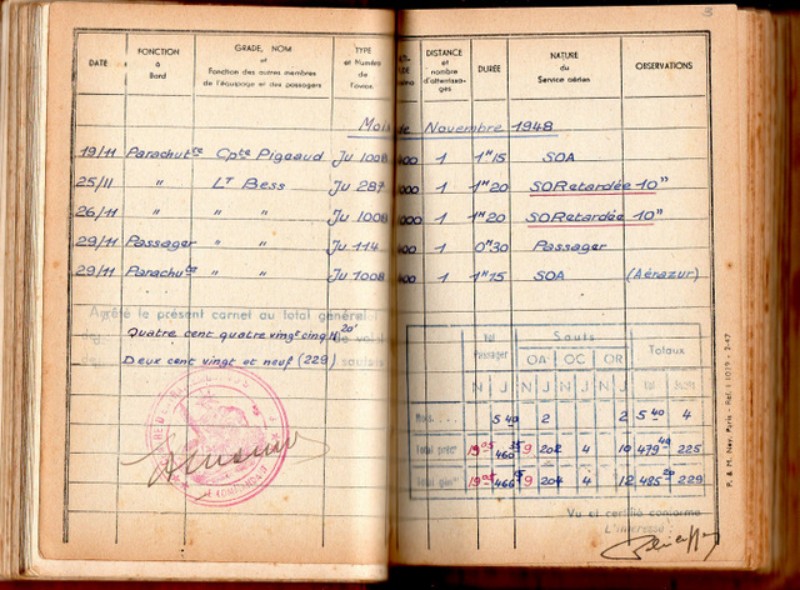 3
DATE FONCTION à Bord GRADE, NOM et Fonction des autres membres de l'équipage et des passagers TYPE et Numéro de l'avion DISTANCE et nombre d'atterrissages DURÉE NATURE du Service aérien OBSERVATIONS
Mois de Novembre 1948
19/11 Parachutte Cpte Pigeaud Ju 1008 400 1 1H15 SOA
25/11 " Lt Bess Ju 287 000 1 1H20 SORetardée 10"
26/11 " " " Ju 1008 000 1 1H20 SORetardée 10"
29/11 Passager " " Ju 114 400 1 0H30 Passager
29/11 Parachutte " " Ju 1008 400 1 1H15 SOA (Aérazur)
Agrété le présent carnet au total général
Quatre cent quatre vingt cinq H 20' de vol
Deux cent vingt et neuf (229) sauts
Vol Passager Sauts Totaux
OA OC OR
N J N J N J N J Vol Sauts
Mois . . . 5 40 2 2 5 40 4
Total préct 19 05 460 35 9 202 4 10 479 40 225
Total génl 19 05 466 15 9 204 4 12 485 20 229
LE COMMANDANT
Vu et certifié conforme
L'intéressé :
P. & M. Nay. Paris - Réf. : 1019 - 3-47